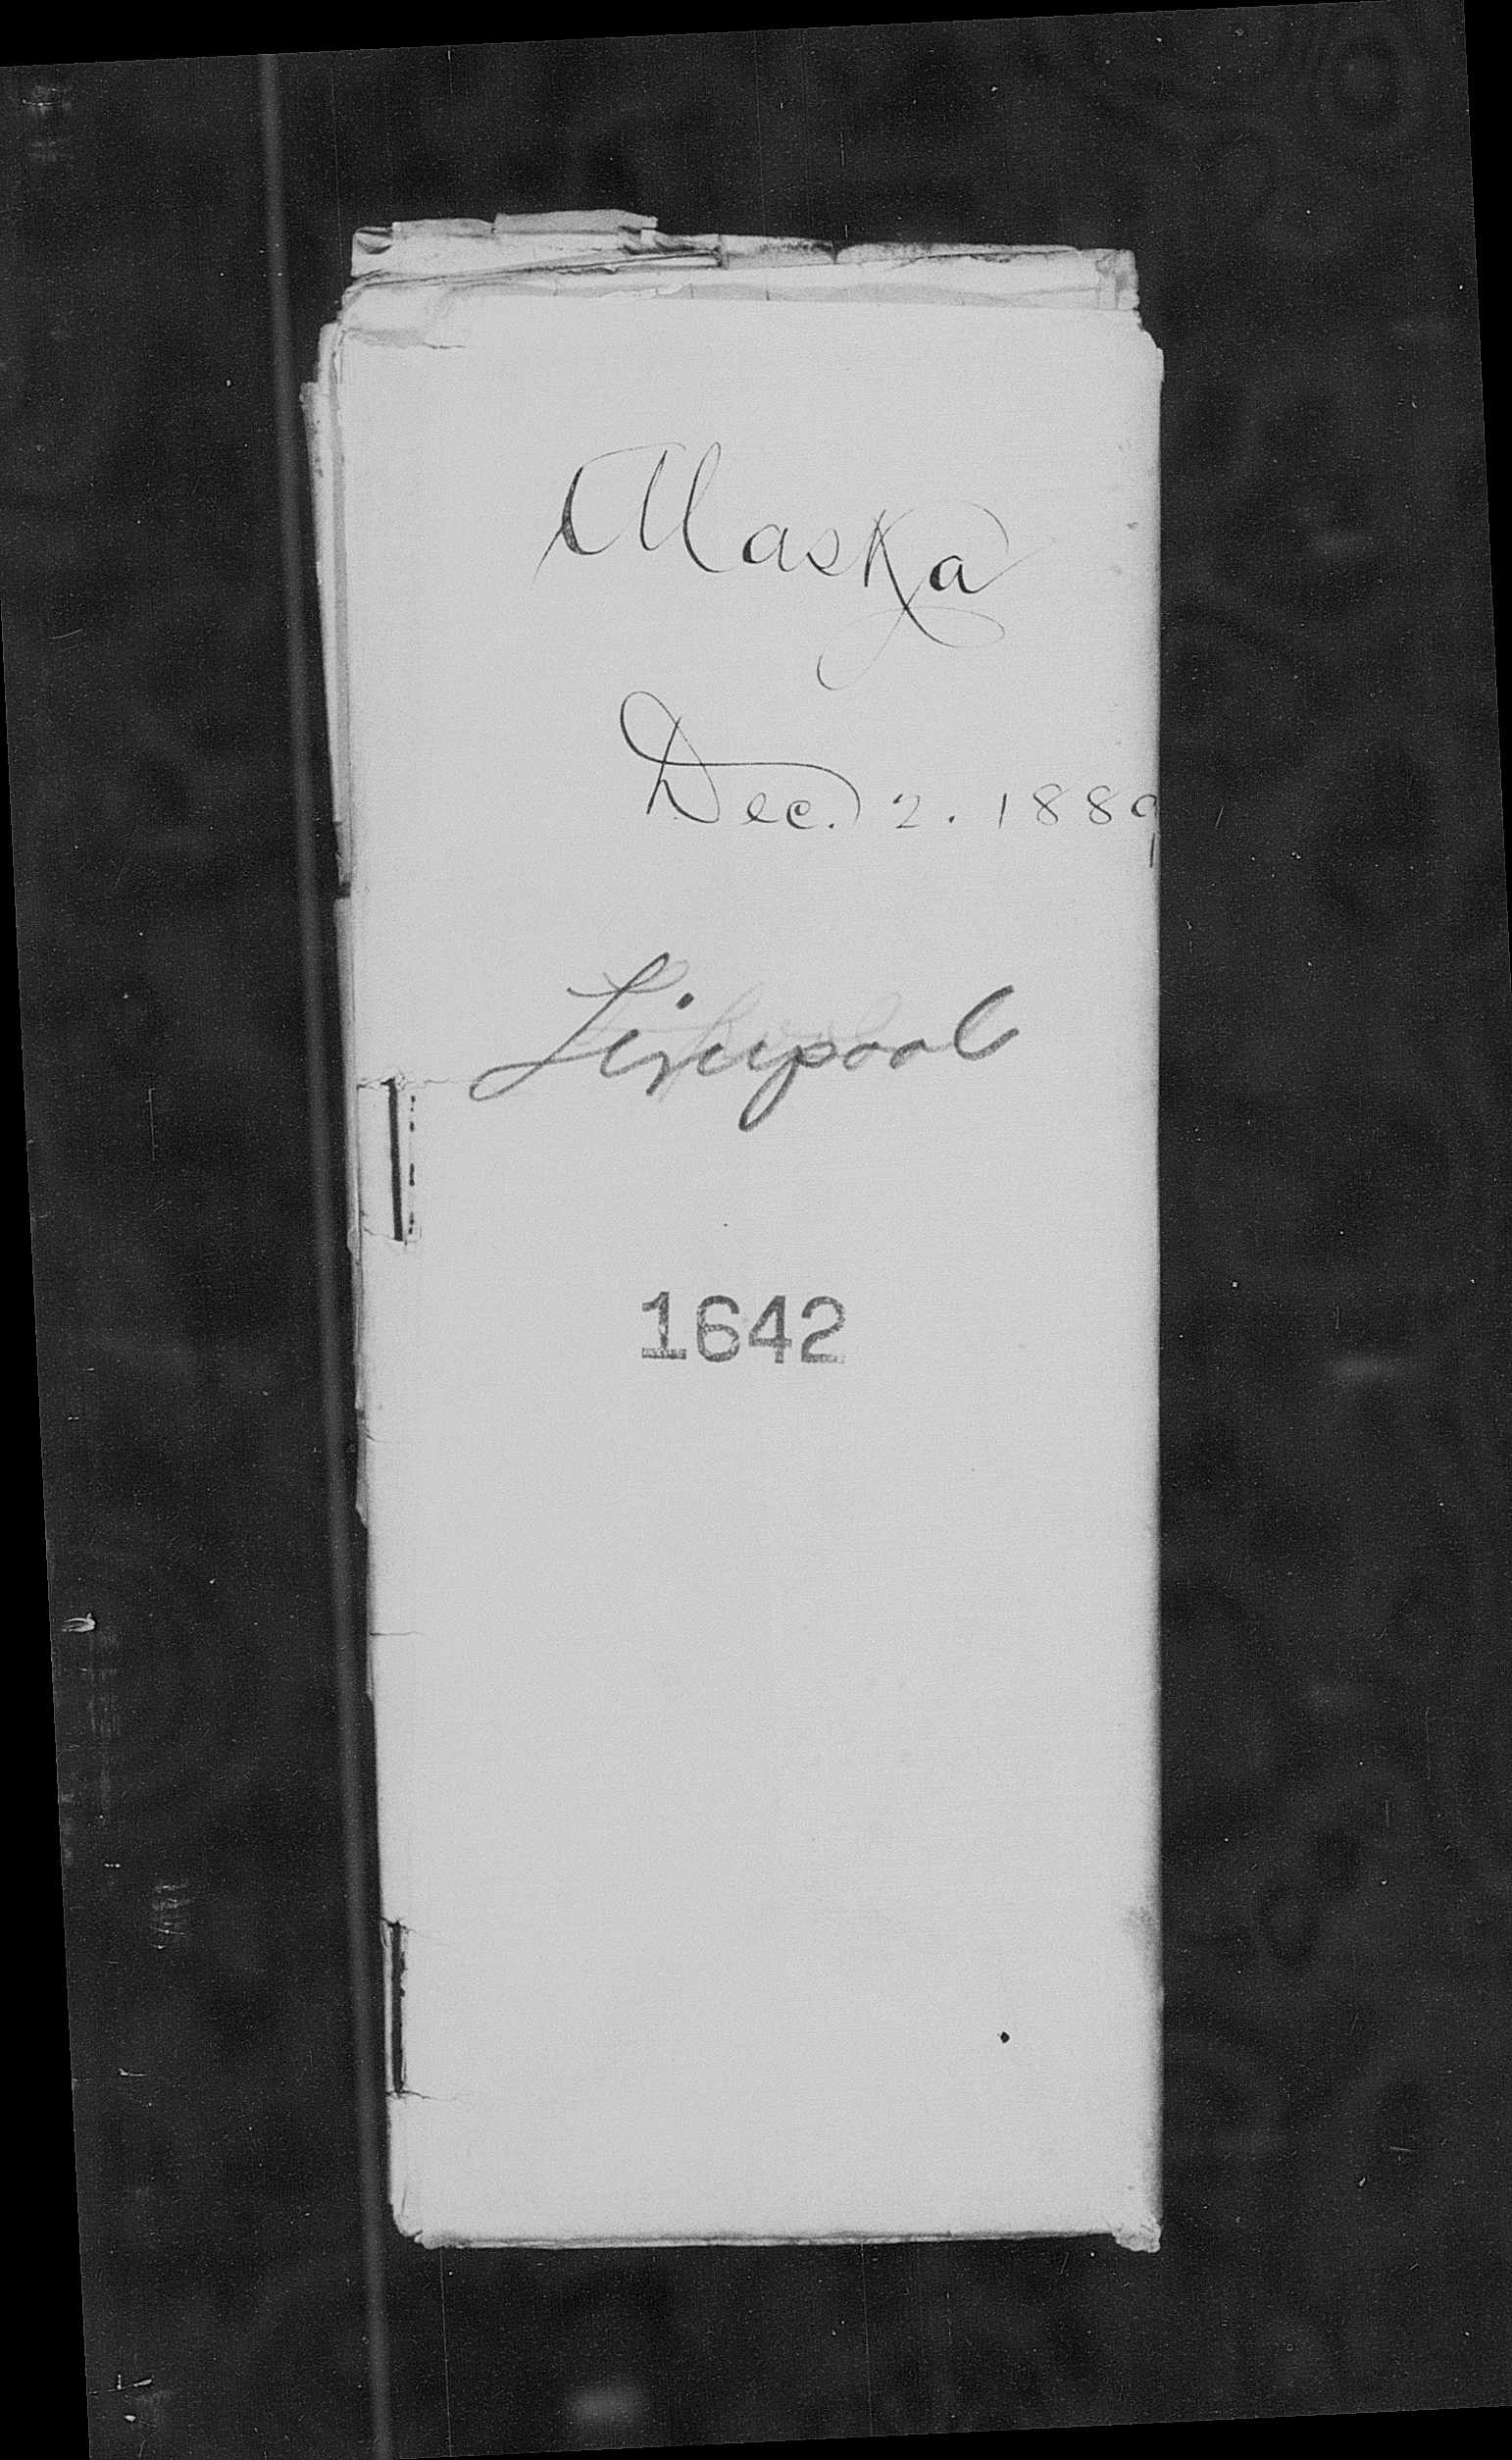 Alaska
Dec. 2. 1889
Liverpool
1642